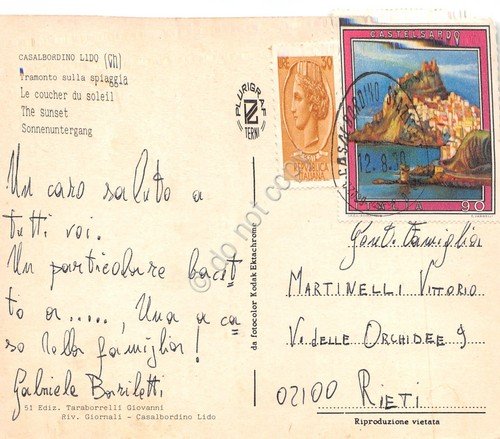 CASALBORDINO LIDO (Ch)
Tramonto sulla spiaggia
Le coucher du soleil
The sunset
Sonnenuntergang
Un caro saluto a
tutti voi.
Un particolare bacet
to a....., Una a ca
so della famiglia!
Gabriele
51 Ediz. Taraborrelli Giovanni
Riv. Giornali - Casalbordino Lido
PLURIGRAF
TERNI
da fotocolor Kodak Ektachrome
L. 30
REPUBBLICA
ITALIANA
CASTELSARDO
90
12.8.
Gent. Famiglia
MARTINELLI VITTORIO
V. delle ORCHIDEE 9
02100 RIETI
Riproduzione vietata
do not copy